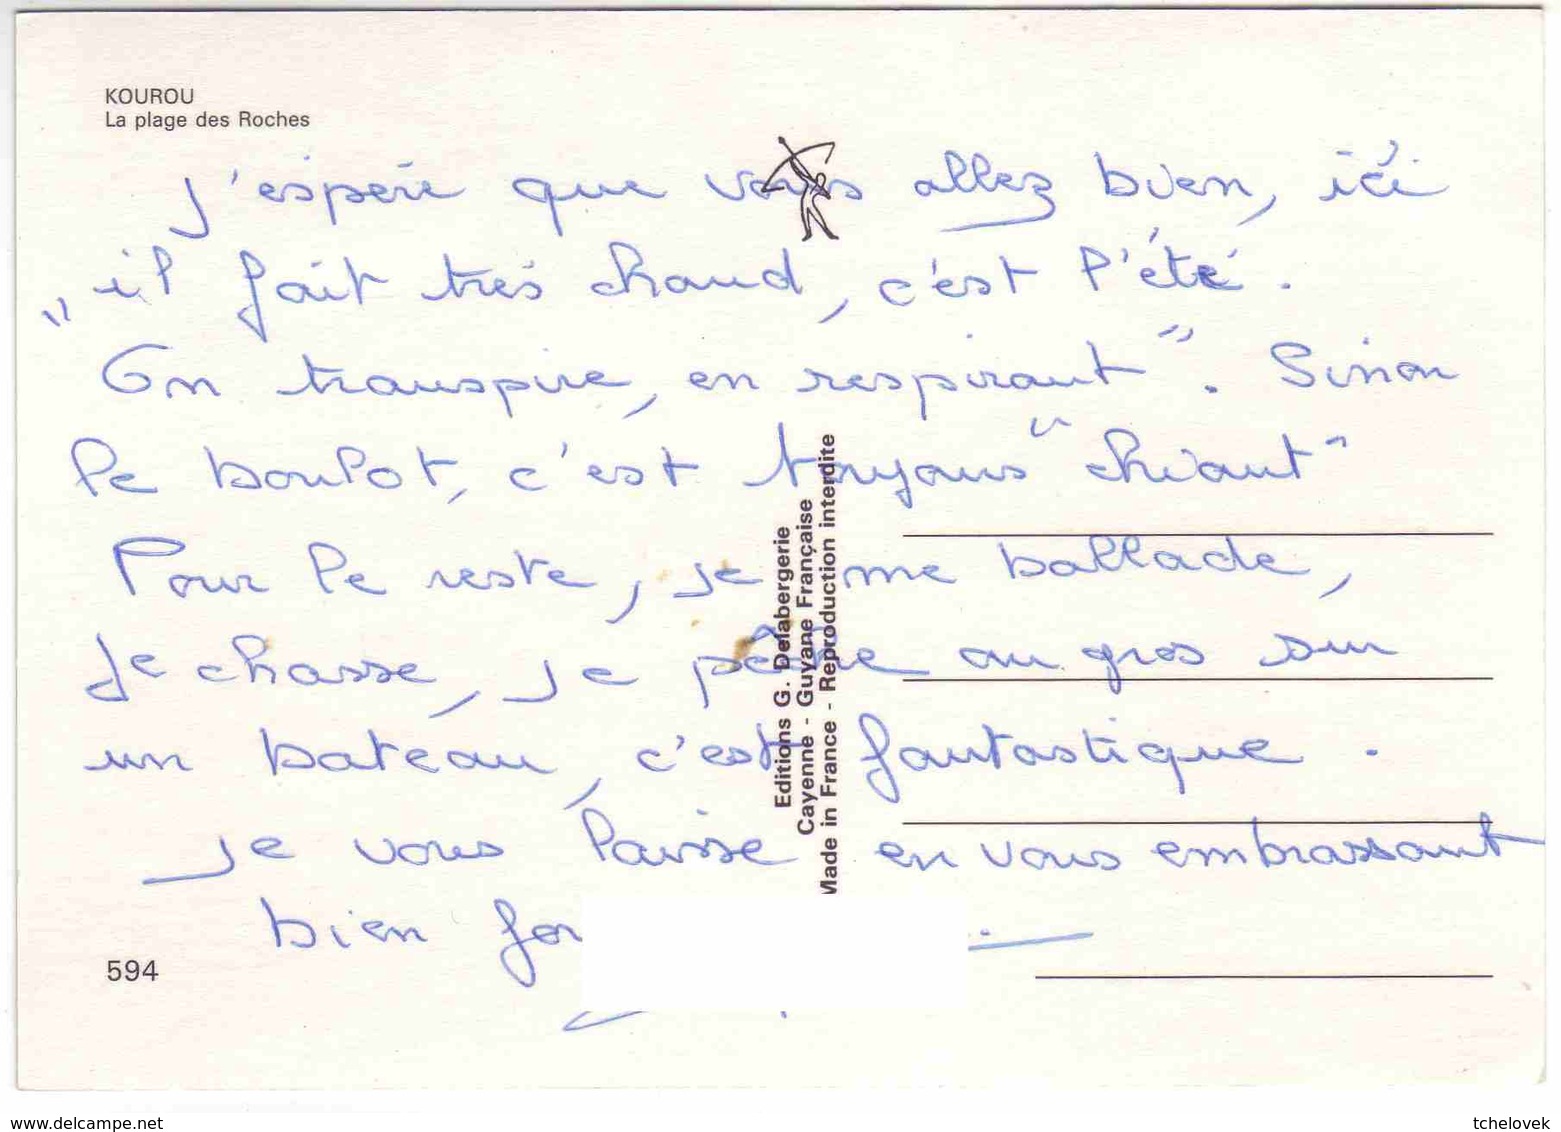 KOUROU
La plage des Roches
J'espère que vous allez bien, ici
il fait très chaud, c'est l'été.
"On transpire, en respirant". Sinon
le boulot, c'est toujours "chiant"
Pour le reste, je me ballade,
Je chasse, je pêche au gros sur
un bateau, c'est fantastique.
Je vous laisse en vous embrassant
bien for
594
Editions G. Delabergerie
Cayenne - Guyane Française
Made in France - Reproduction interdite
www.delcampe.net
tchelovek